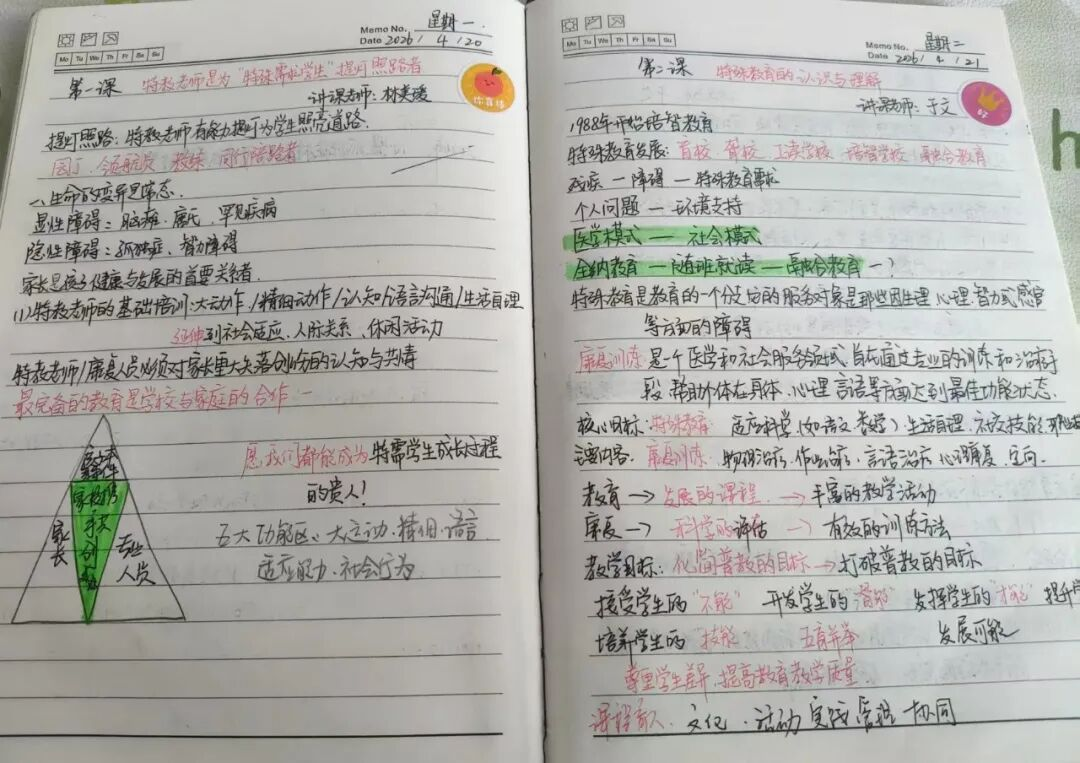 Memo No. 星期一.
Mo Tu We Th Fr Sa Su
Date 2026 / 4 / 20
第一课 特教老师是为"特殊需要学生"提灯照路者
讲课老师: 林美瑗
你真棒
提灯照路: 特教老师有能力提灯为学生照亮道路.
园丁 领航员 教练 同行陪跑者
一、生命的变异是常态.
显性障碍: 脑瘫、唐氏、罕见疾病
隐性障碍: 孤独症、智力障碍
家长是孩子健康与发展的首要关系者.
(1)特教老师的基础培训:大动作/精细动作/认知/语言沟通/生活自理
延伸到社会适应、人际关系、休闲活动
特教老师/康复人员必须对家长重大失落创伤的认知与共情
最完备的教育是学校与家庭的合作
愿我们都能成为特需学生成长过程
的贵人!
五大功能区: 大运动、精细、语言
适应能力、社会行为
家长
专业人员
Memo No. 星期二
Mo Tu We Th Fr Sa Su
Date 2026 / 4 / 21
第二课 特殊教育的认识与理解
讲课老师: 于文
好
1988年开始培智教育
特殊教育发展: 盲校、聋校、工读学校、培智学校、融合教育
残疾 — 障碍 — 特殊教育需求
个人问题 — 环境支持
医学模式 — 社会模式
全纳教育 — 随班就读 — 融合教育 —?
特殊教育是教育的一个分支的服务对象是那些因生理 心理 智力或感官
等方面的障碍
康复训练 是一个医学和社会服务领域 旨在通过专业的训练和治疗手
段 帮助个体在身体、心理 言语等方面达到最佳功能状态.
核心目标: 特殊教育 适应科学(如语文 数学)、生活自理、社交技能、
主要内容: 康复训练 物理治疗、作业治疗、言语治疗 心理康复、定向.
教育 → 发展的课程 → 丰富的教学活动
康复 → 科学的评估 → 有效的训练方法
教学目标: 化简普教的目标 → 打破普教的目标
接受学生的"不能" 开发学生的"潜能" 发挥学生的"才能" 提升
培养学生的"技能" 五育并举 发展可能
尊重学生差异、提高教育教学质量
课程育人、文化、活动 实践 管理 协同